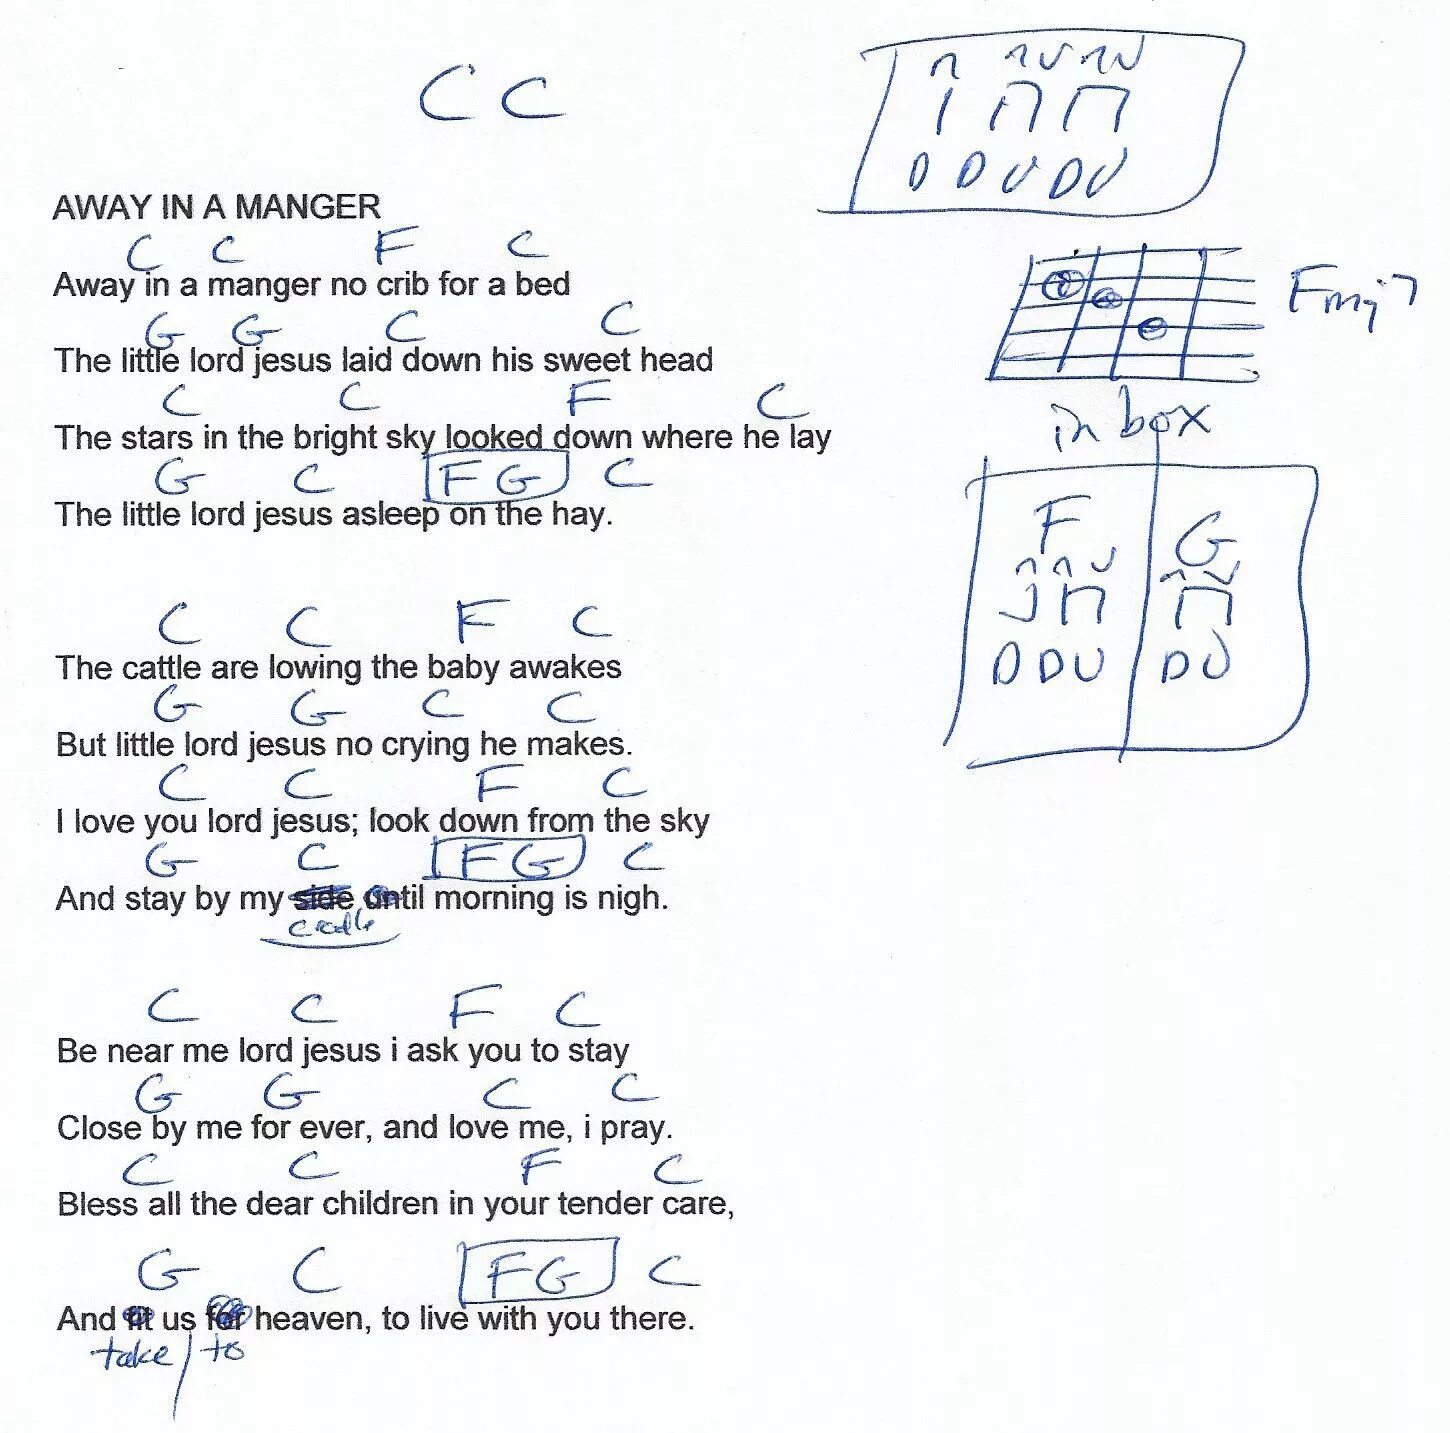 C C
AWAY IN A MANGER
C C F C
Away in a manger no crib for a bed
G G C C
The little lord jesus laid down his sweet head
C C F C
The stars in the bright sky looked down where he lay
G C F G C
The little lord jesus asleep on the hay.
C C F C
The cattle are lowing the baby awakes
G G C C
But little lord jesus no crying he makes.
C C F C
I love you lord jesus; look down from the sky
G C F G C
And stay by my side until morning is nigh.
cradle
C C F C
Be near me lord jesus i ask you to stay
G G C C
Close by me for ever, and love me, i pray.
C C F C
Bless all the dear children in your tender care,
G C F G C
And fit us for heaven, to live with you there.
take to
D D U D U
Fmaj7
in box
F G
D D U D U